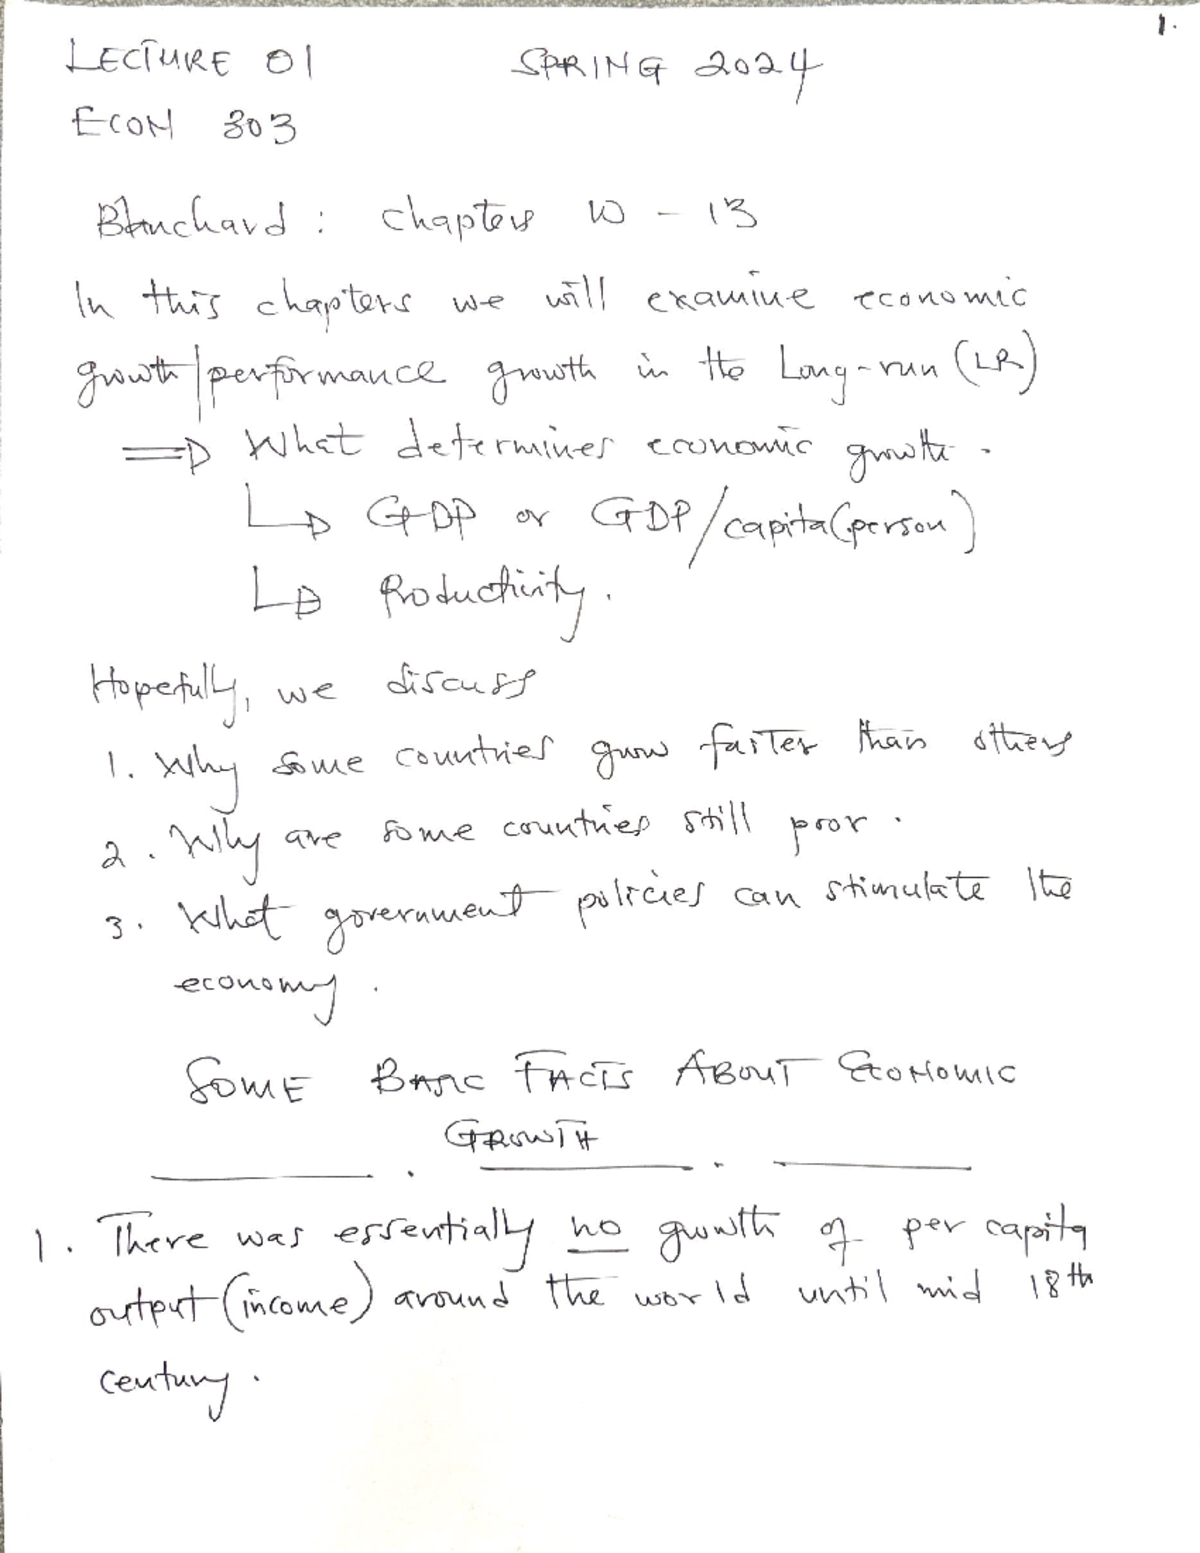 1.
LECTURE 01 SPRING 2024
ECON 303
Blanchard: chapters 10 - 13
In this chapters we will examine economic
growth/performance growth in the Long-run (LR)
⇒ What determines economic growth.
↳ GDP or GDP/capita(person)
↳ Productivity.
Hopefully, we discuss
1. Why some countries grow faster than others
2. Why are some countries still poor.
3. What government policies can stimulate the
economy.
SOME BASIC FACTS ABOUT ECONOMIC
GROWTH
1. There was essentially no growth of per capita
output (income) around the world until mid 18th
century.